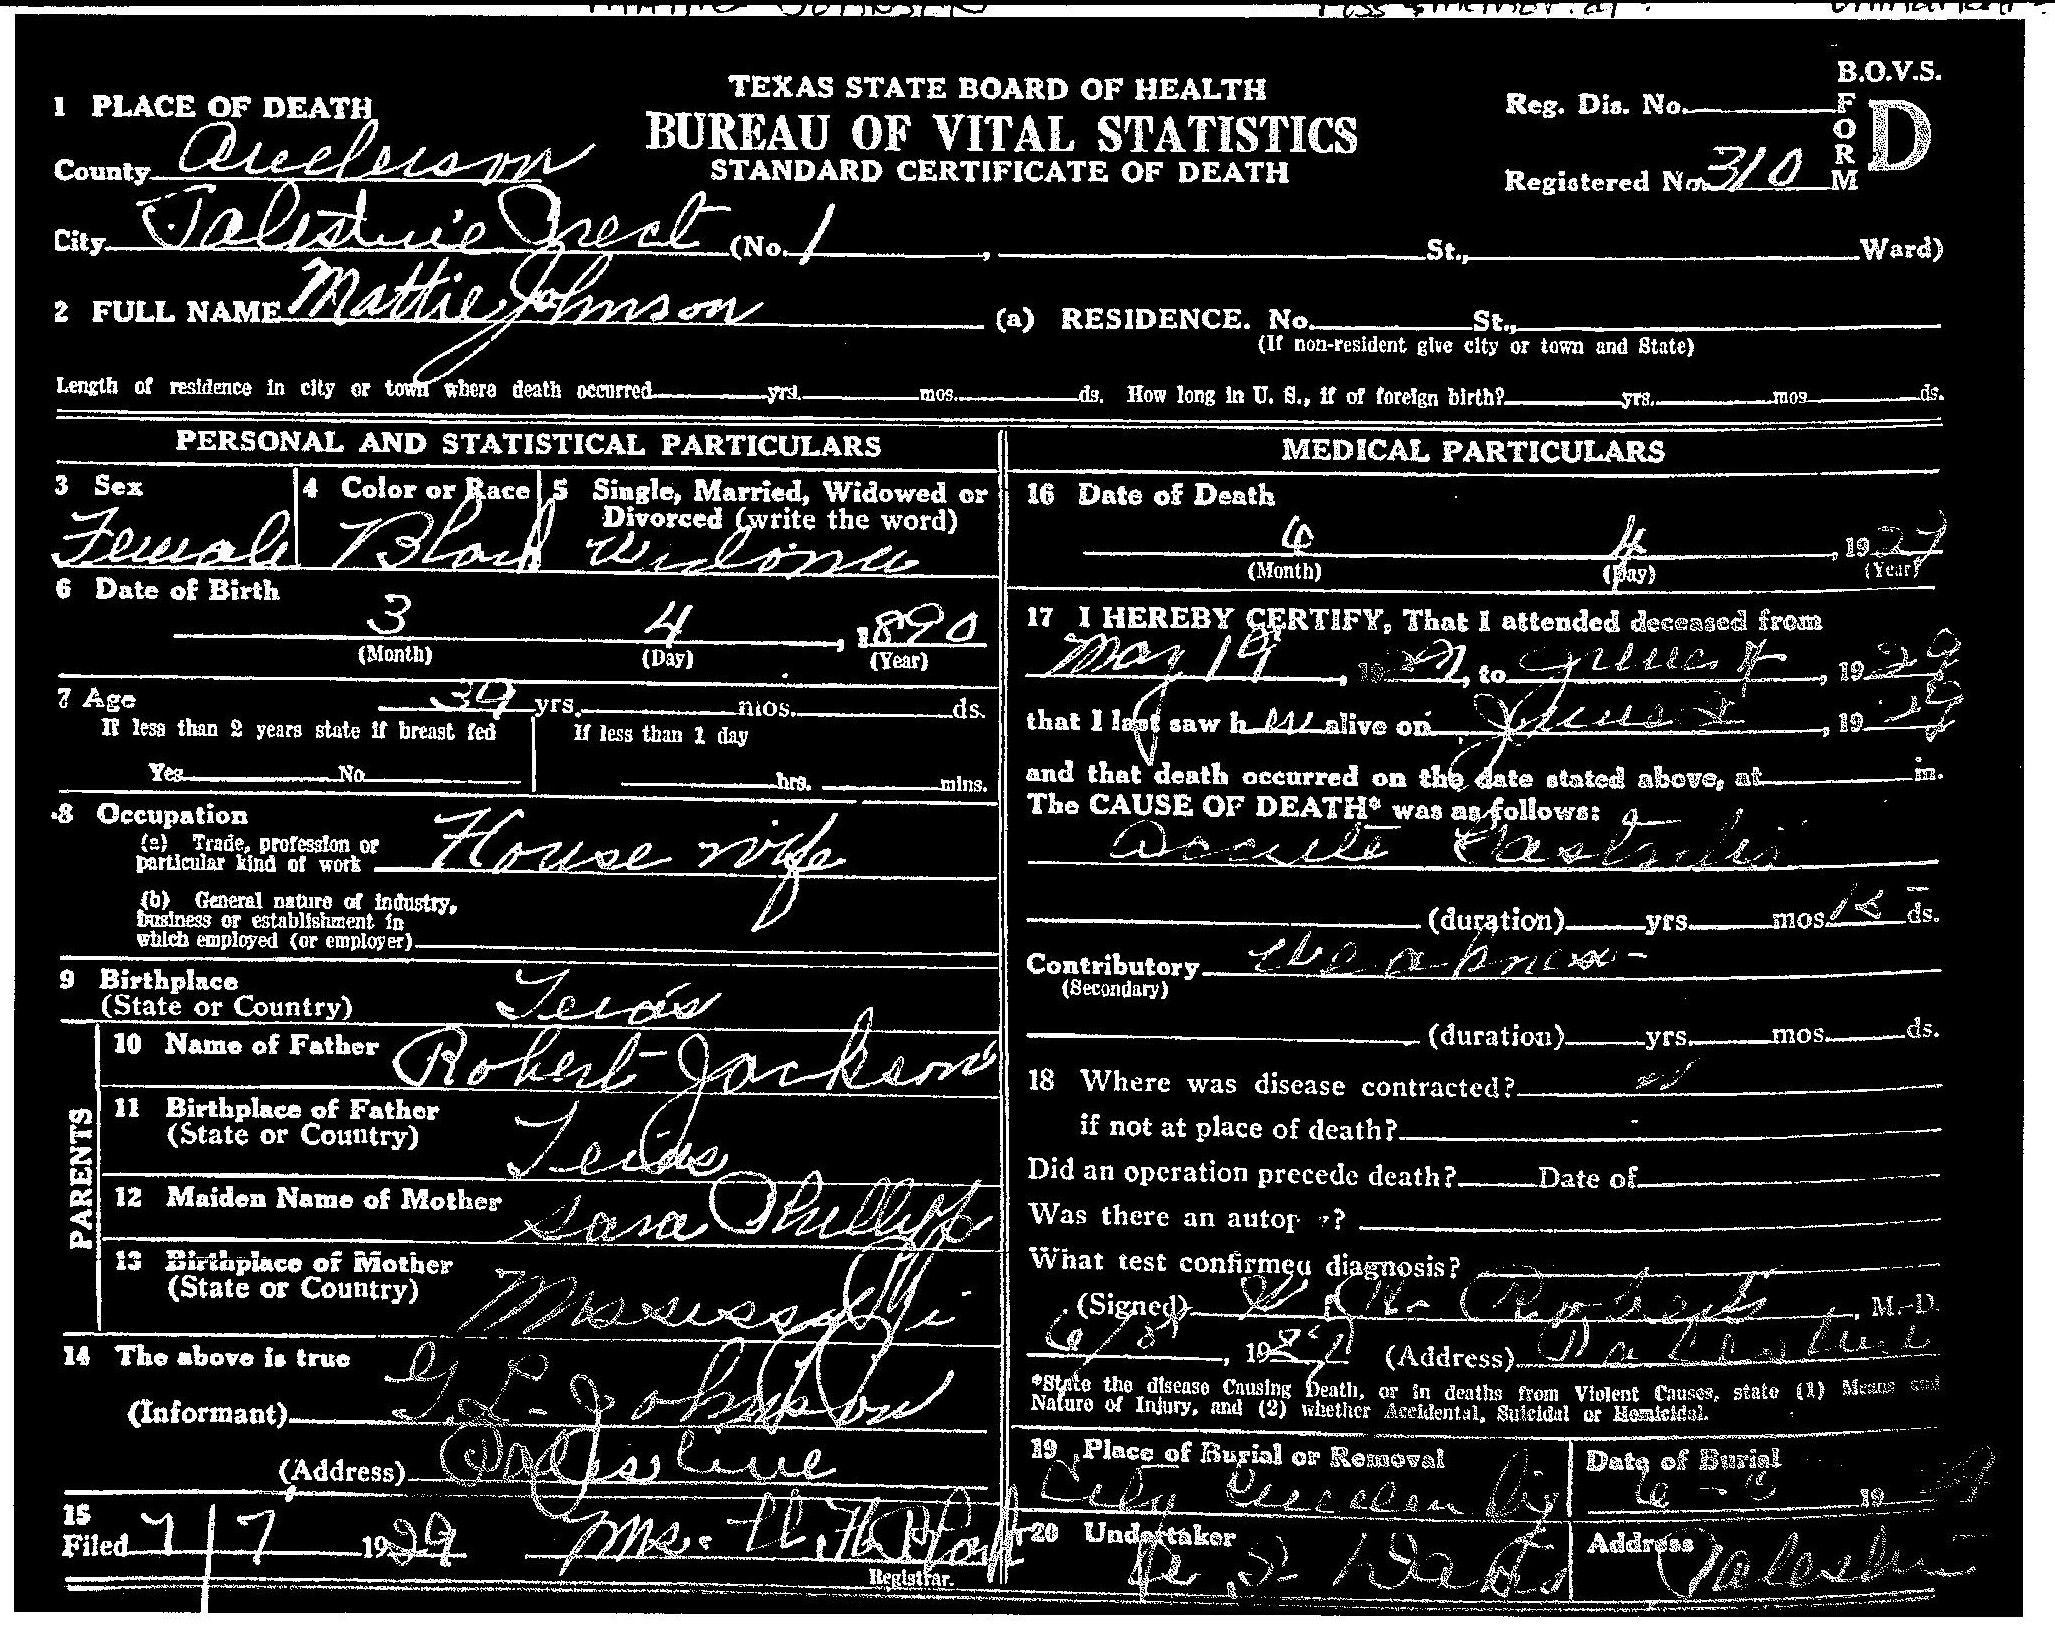 TEXAS STATE BOARD OF HEALTH
BUREAU OF VITAL STATISTICS
STANDARD CERTIFICATE OF DEATH
B.O.V.S.
FORM D
Reg. Dis. No.
Registered No. 310
1 PLACE OF DEATH
County Anderson
City Palestine Precct (No. 1, St., Ward)
2 FULL NAME Mattie Johnson (a) RESIDENCE. No. St.,
(If non-resident give city or town and State)
Length of residence in city or town where death occurred yrs. mos. ds. How long in U. S., if of foreign birth? yrs. mos ds.
PERSONAL AND STATISTICAL PARTICULARS
3 Sex
Female
4 Color or Race
Black
5 Single, Married, Widowed or
Divorced (write the word)
6 Date of Birth
3 4, 1890
(Month) (Day) (Year)
7 Age 39 yrs. mos. ds.
If less than 2 years state if breast fed
Yes No
If less than 1 day
hrs. mins.
8 Occupation
(a) Trade, profession or
particular kind of work House wife
(b) General nature of industry,
business or establishment in
which employed (or employer)
9 Birthplace
(State or Country) Texas
PARENTS
10 Name of Father Robert Jackson
11 Birthplace of Father
(State or Country) Texas
12 Maiden Name of Mother Sara Phillips
13 Birthplace of Mother
(State or Country) Mississippi
14 The above is true
(Informant) Johnson
(Address) Palestine
15
Filed 7/7 1929 Mrs.
Registrar.
MEDICAL PARTICULARS
16 Date of Death
4, 19
(Month) (Day) (Year)
17 I HEREBY CERTIFY, That I attended deceased from
May 19, 1929, to June 4, 1929
that I last saw her alive on June, 1929
and that death occurred on the date stated above, at m.
The CAUSE OF DEATH* was as follows:
(duration) yrs. mos. ds.
Contributory Weakness
(Secondary)
(duration) yrs. mos. ds.
18 Where was disease contracted?
if not at place of death?
Did an operation precede death? Date of
Was there an autopy?
What test confirmed diagnosis?
(Signed) H. Roberts, M.-D.
, 1929 (Address) Palestine
*State the disease Causing Death, or in deaths from Violent Causes, state (1) Means and
Nature of Injury, and (2) whether Accidental, Suicidal or Homicidal.
19 Place of Burial or Removal
City
Date of Burial
6 - 19 29
20 Undertaker
Address Palestine